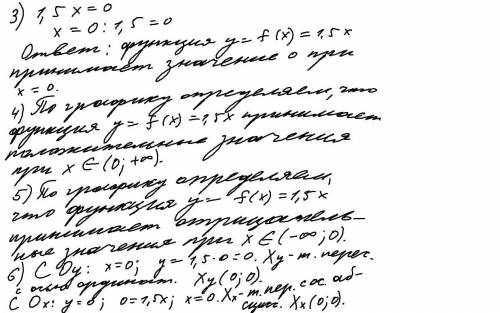 3) 1,5 x = 0
x = 0 : 1,5 = 0
Ответ: функция y = f(x) = 1,5x
принимает значение 0 при
x = 0.
4) По графику определяем, что
функция y = f(x) = 1,5x принимает
положительные значения
при x ∈ (0; +∞).
5) По графику определяем,
что функция y = f(x) = 1,5x
принимает отрицатель-
ные значения при x ∈ (-∞; 0).
6) С Оy: x=0; y = 1,5·0 = 0. Xy - т. перес.
с осью ординат. Xy (0; 0).
С Ox: y=0; 0=1,5x; x=0. Xx - т. пер. с ос. аб-
сцисс. Xx (0; 0).